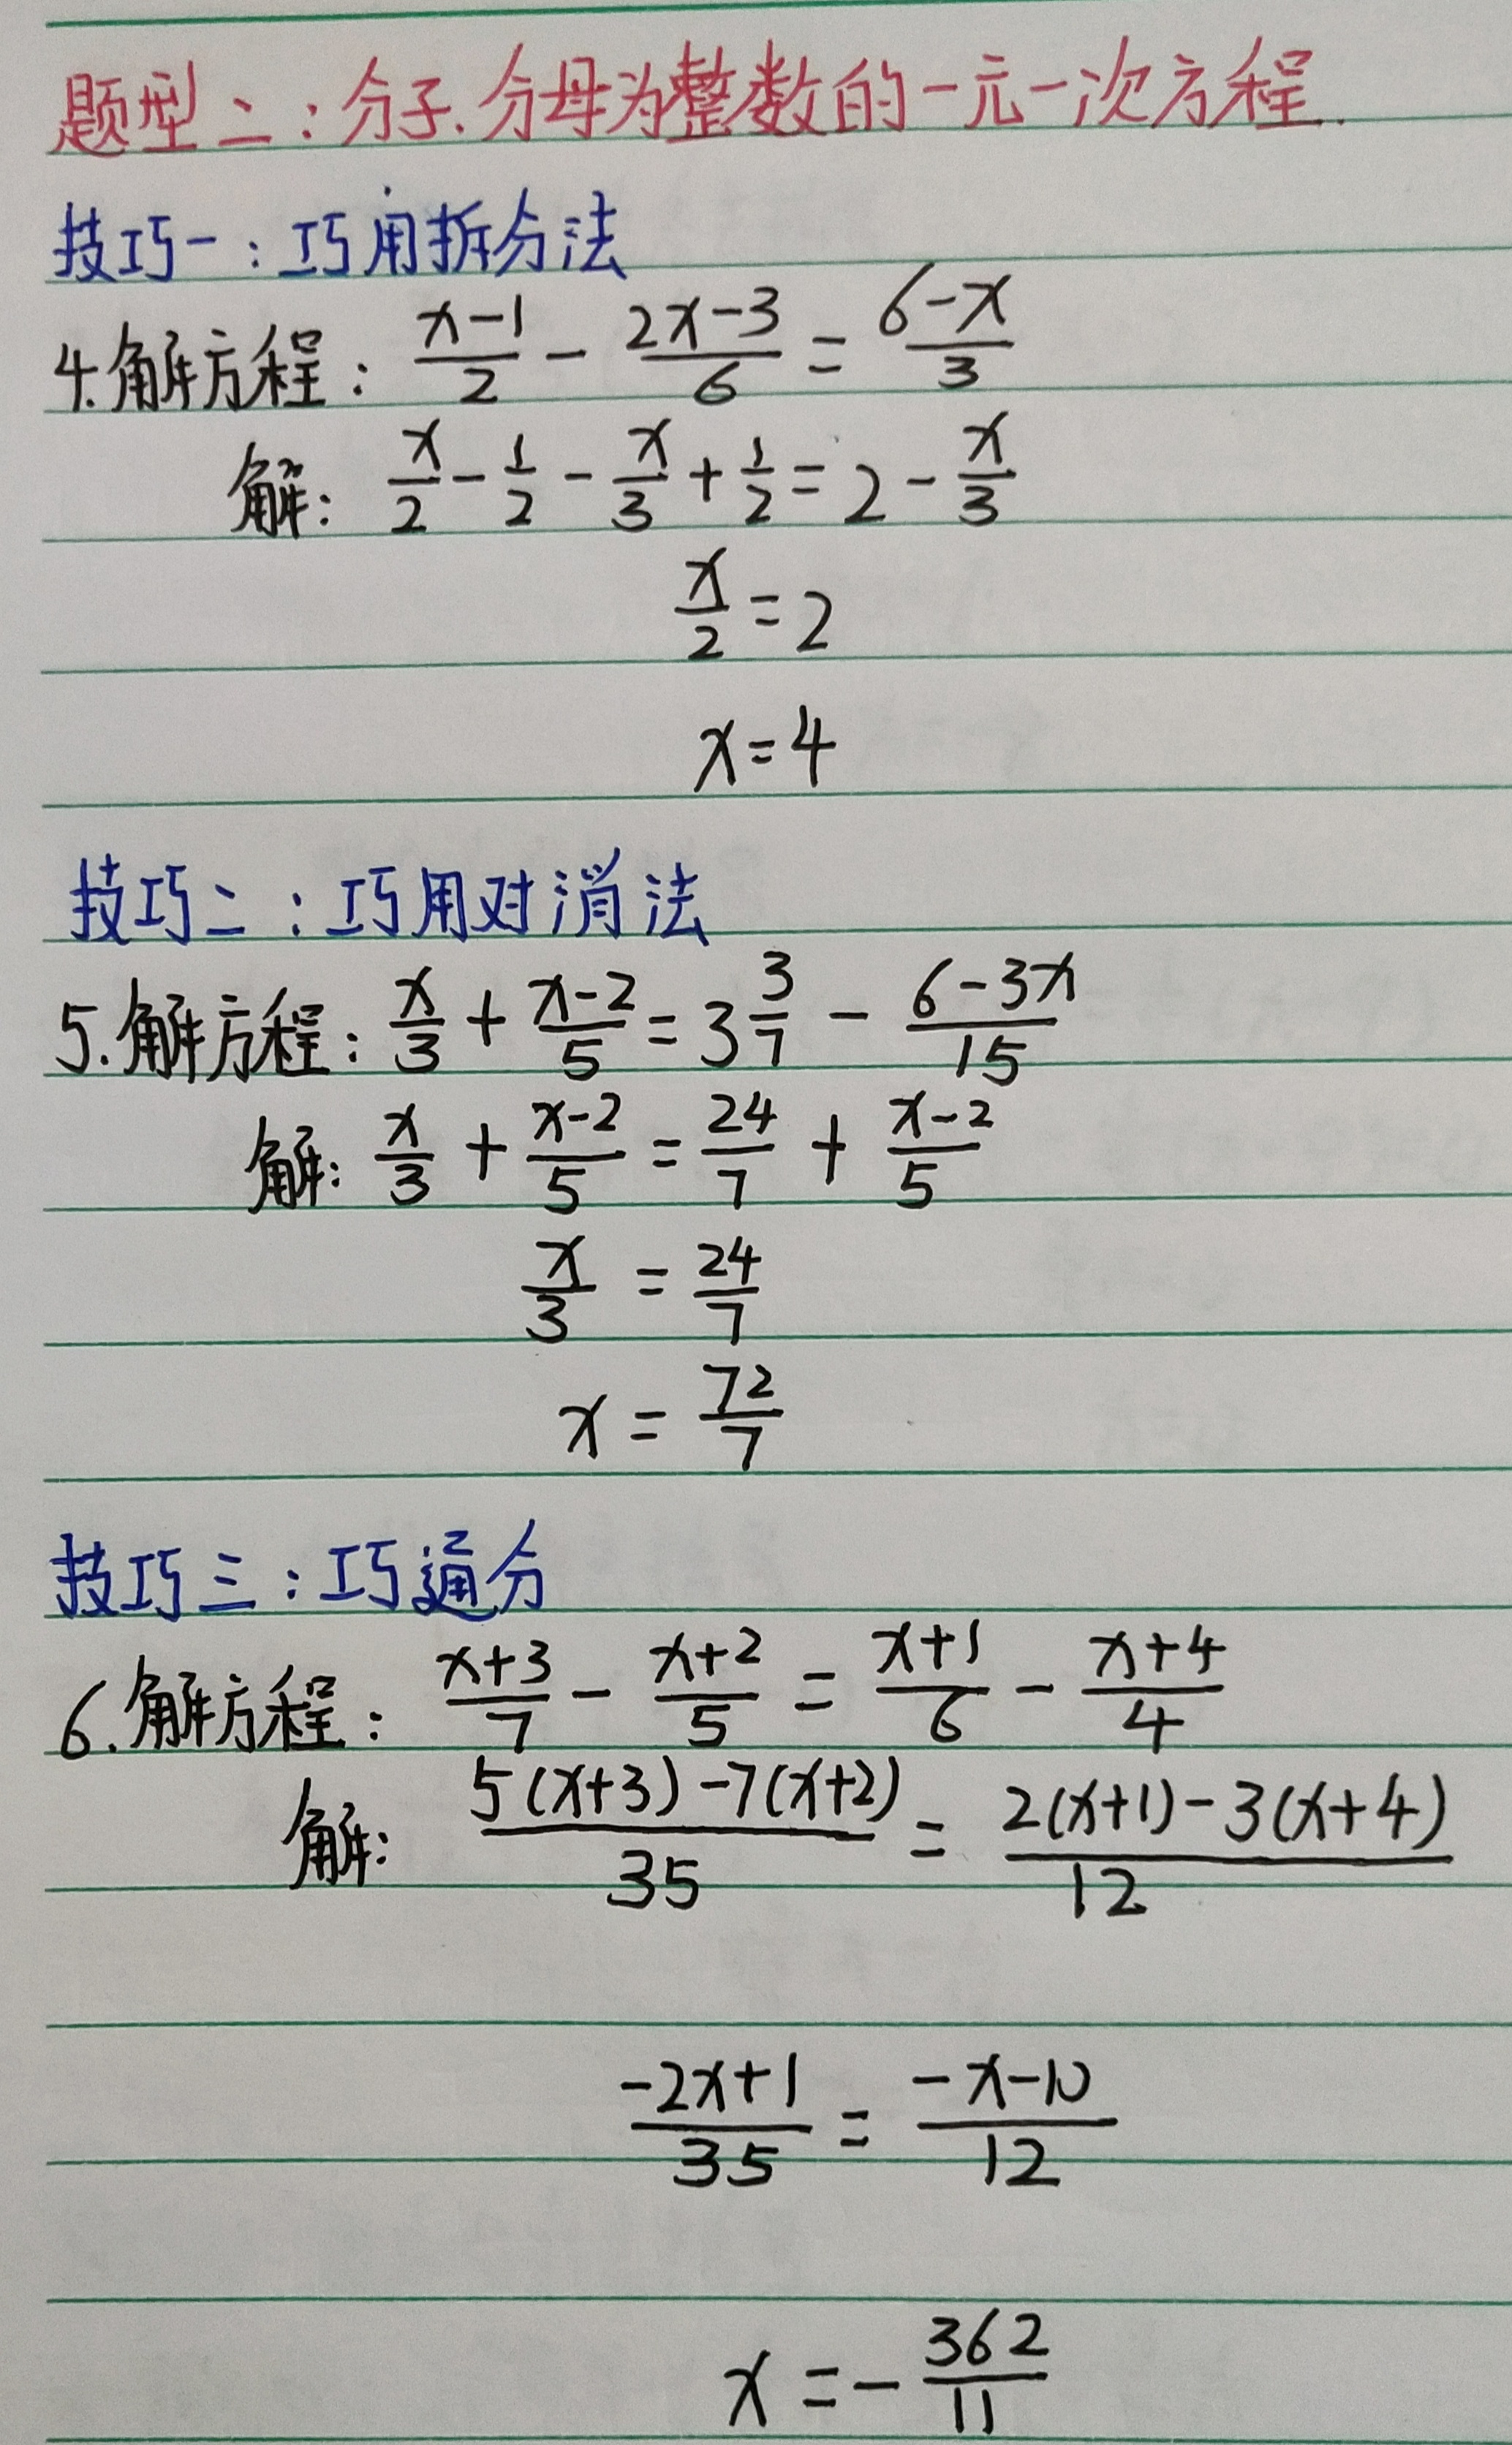 题型二:分子、分母为整数的一元一次方程.
技巧一:巧用拆分法
4.解方程: \frac{x-1}{2} - \frac{2x-3}{6} = \frac{6-x}{3}
解: \frac{x}{2} - \frac{1}{2} - \frac{x}{3} + \frac{1}{2} = 2 - \frac{x}{3}
\frac{x}{2} = 2
x=4
技巧二:巧用对消法
5.解方程: \frac{x}{3} + \frac{x-2}{5} = 3\frac{3}{7} - \frac{6-3x}{15}
解: \frac{x}{3} + \frac{x-2}{5} = \frac{24}{7} + \frac{x-2}{5}
\frac{x}{3} = \frac{24}{7}
x = \frac{72}{7}
技巧三:巧通分
6.解方程: \frac{x+3}{7} - \frac{x+2}{5} = \frac{x+1}{6} - \frac{x+4}{4}
解: \frac{5(x+3)-7(x+2)}{35} = \frac{2(x+1)-3(x+4)}{12}
\frac{-2x+1}{35} = \frac{-x-10}{12}
x = -\frac{362}{11}